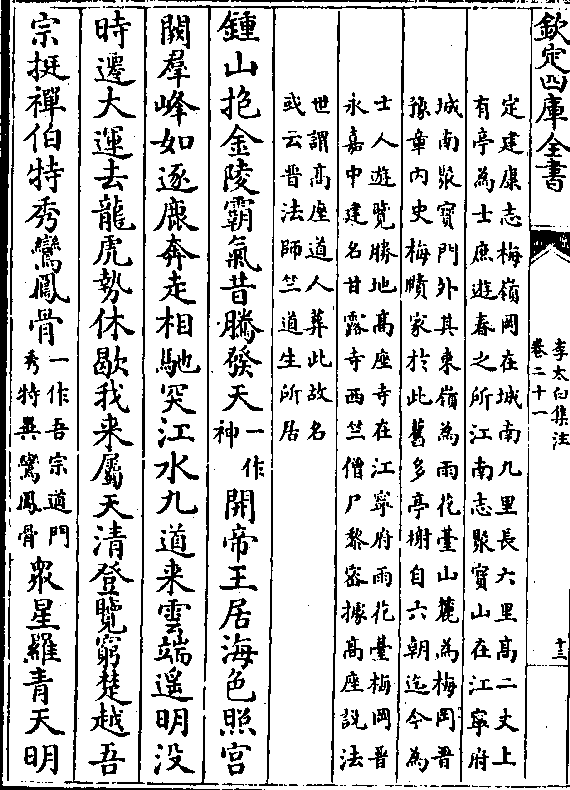 欽定四庫全書
李太白集注
卷二十一
十三
定建康志梅嶺岡在城南九里長六里高二丈上
有亭為士庶遊春之所江南志聚寶山在江寧府
城南聚寶門外其東嶺為雨花臺山麓為梅岡晉
豫章内史梅賾家於此舊多亭榭自六朝迄今為
士人遊覽勝地高座寺在江寧府雨花臺梅岡晉
永嘉中建名甘露寺西竺僧尸黎宻據高座説法
世謂高座道人葬此故名
或云晉法師竺道生所居
鍾山抱金陵霸氣昔騰發天一作神開帝王居海色照宮
闕羣峰如逐鹿奔走相馳突江水九道来雲端遥明没
時遷大運去龍虎勢休歇我来屬天清登覽窮楚越吾
宗挺禪伯特秀鸞鳳骨一作吾宗道門秀特異鸞鳳骨衆星羅青天明